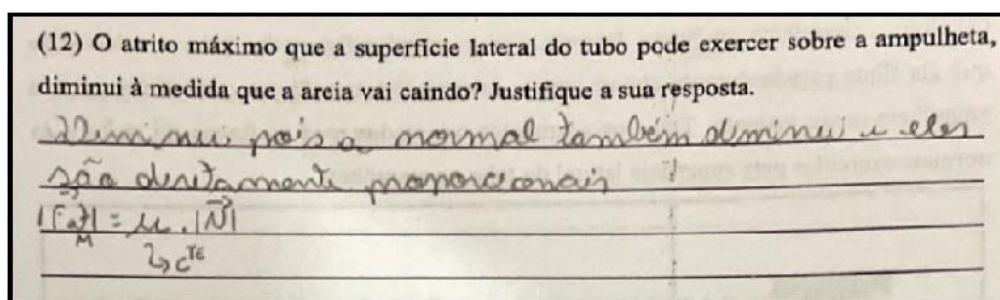 (12) O atrito máximo que a superfície lateral do tubo pode exercer sobre a ampulheta,
diminui à medida que a areia vai caindo? Justifique a sua resposta.
Diminui pois a normal também diminui e eles
são diretamente proporcionais
|F⃗at| = μ . |N⃗|
M
↳ cTE